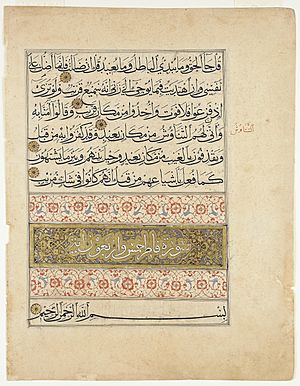 قل جاء الحق وما يبدئ الباطل وما يعيد قل ان ضللت فانما اضل على
نفسي وان اهتديت فبما يوحي الي ربي انه سميع قريب ولو ترى
اذ فزعوا فلا فوت واخذوا من مكان قريب وقالوا آمنا به
وانى لهم التناوش من مكان بعيد وقد كفروا به من قبل
ويقذفون بالغيب من مكان بعيد وحيل بينهم وبين ما يشتهون
كما فعل باشياعهم من قبل انهم كانوا في شك مريب
سورة فاطر خمس واربعون آية
بسم الله الرحمن الرحيم